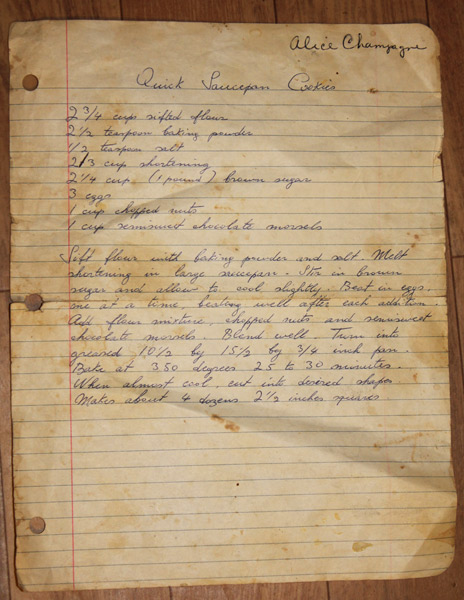 Alice Champagne
Quick Saucepan Cookies
2 3/4 cups sifted flour
2 1/2 teaspoon baking powder
1/2 teaspoon salt
2/3 cup shortening
2 1/4 cup (1 pound) brown sugar
3 eggs
1 cup chopped nuts
1 cup semisweet chocolate morsels
Sift flour with baking powder and salt. Melt
shortening in large saucepan. Stir in brown
sugar and allow to cool slightly. Beat in eggs.
one at a time beating well after each addition.
Add flour mixture, chopped nuts and semisweet
chocolate morsels. Blend well. Turn into
greased 10 1/2 by 15 1/2 by 3/4 inch pan.
Bake at 350 degrees 25 to 30 minutes.
When almost cool, cut into desired shapes
Makes about 4 dozens 2 1/2 inches squares